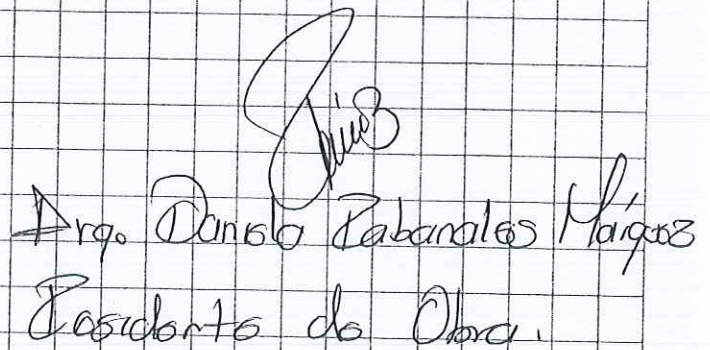 Arq. Daniela Rabanales Márquez
Residente de Obra.